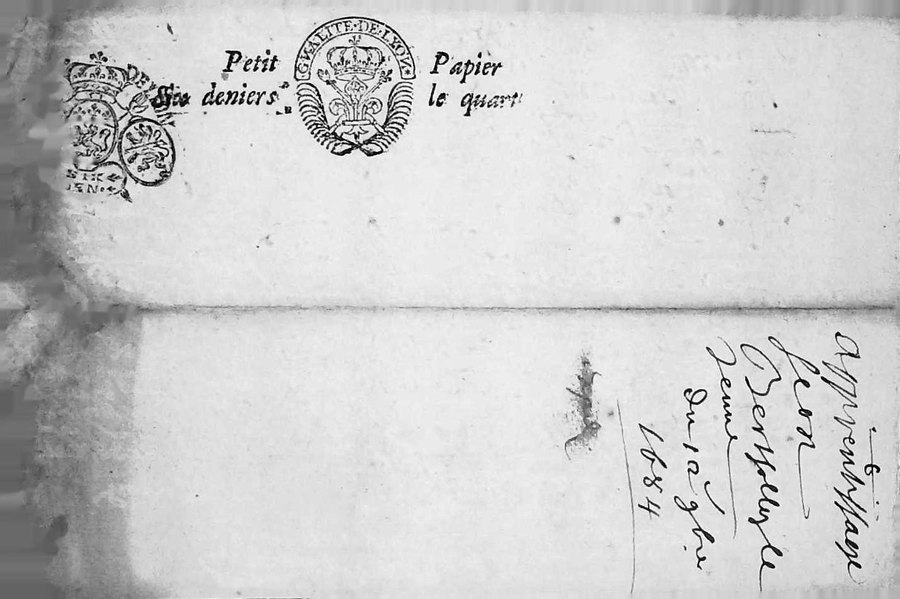 GNALITE·DE·LYON
Petit Papier
Six deniers le quart
SIX
DEN
apprentissage
Jean
Jeune
Du 12 9bre
1684